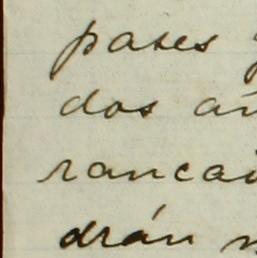 pases
dos añ
rancai
drán